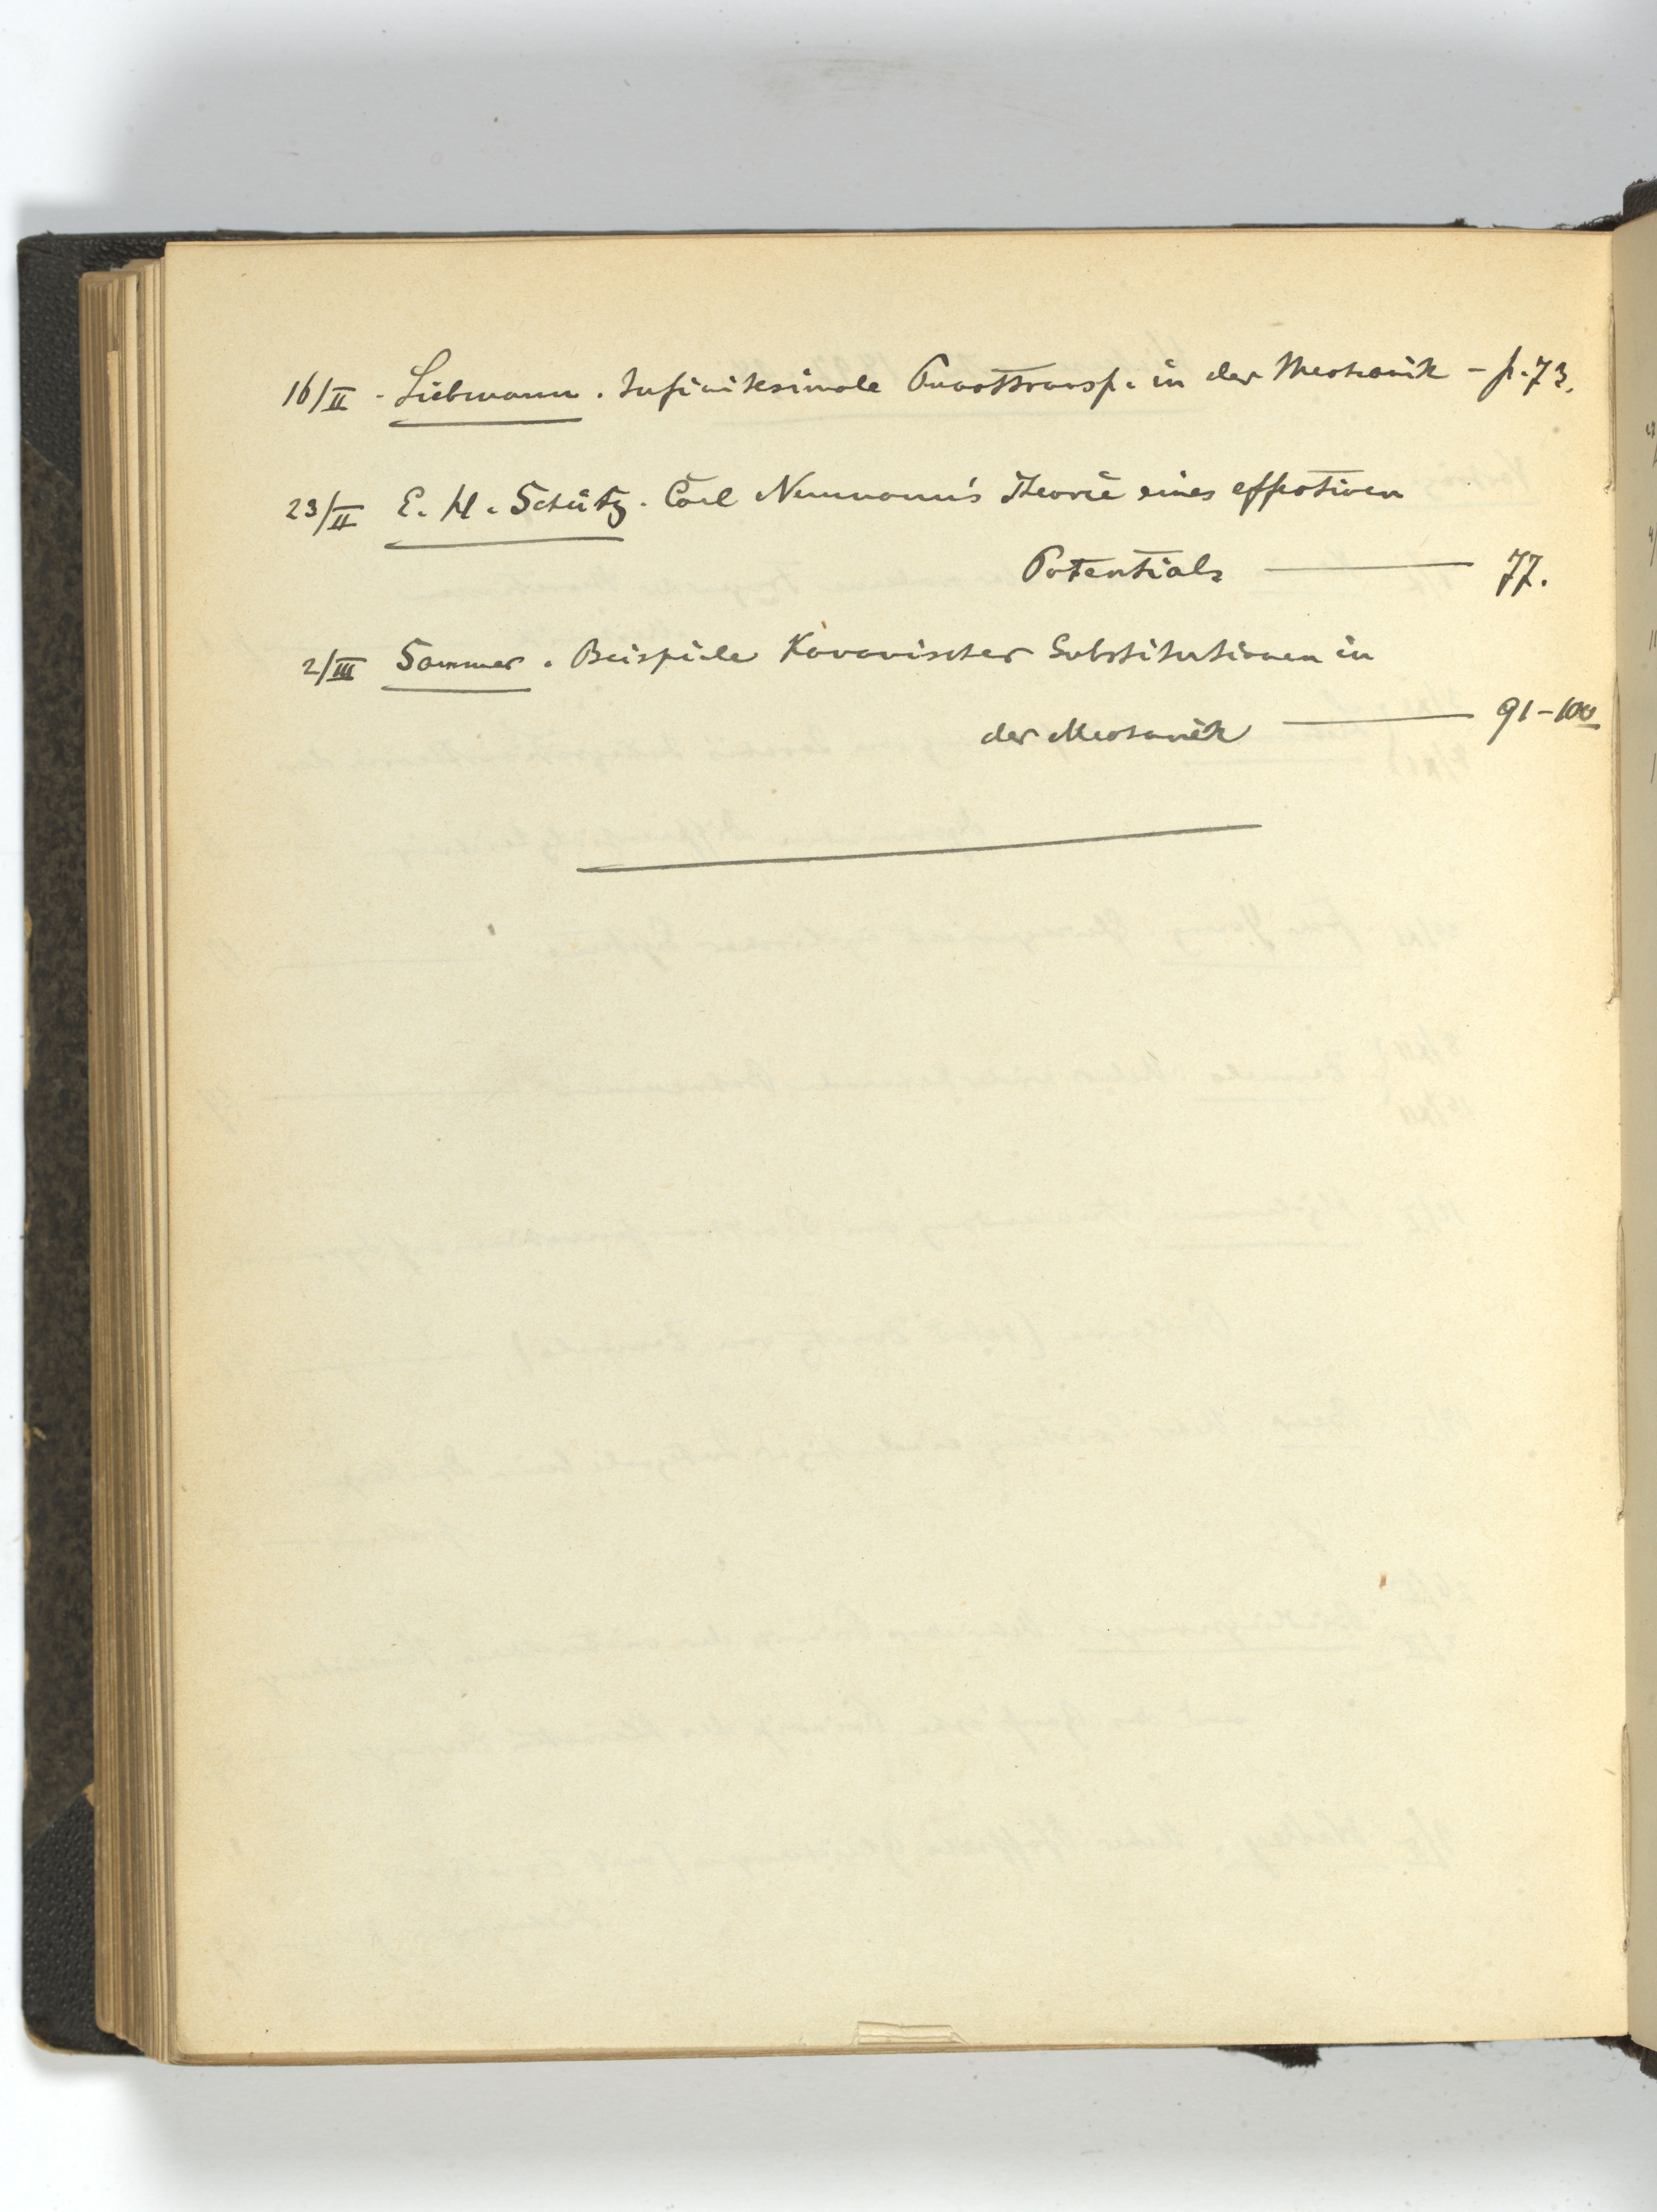 16/II - Liebmann. Infinitesimale Punkttransf. in der Mechanik - p. 73.
23/II E. H. Schütz. Carl Neumann's Theorie eines effectiven
Potentials — 77.
2/III Sommer. Beispiele Kanonischer Substitutionen in
der Mechanik — 91-100